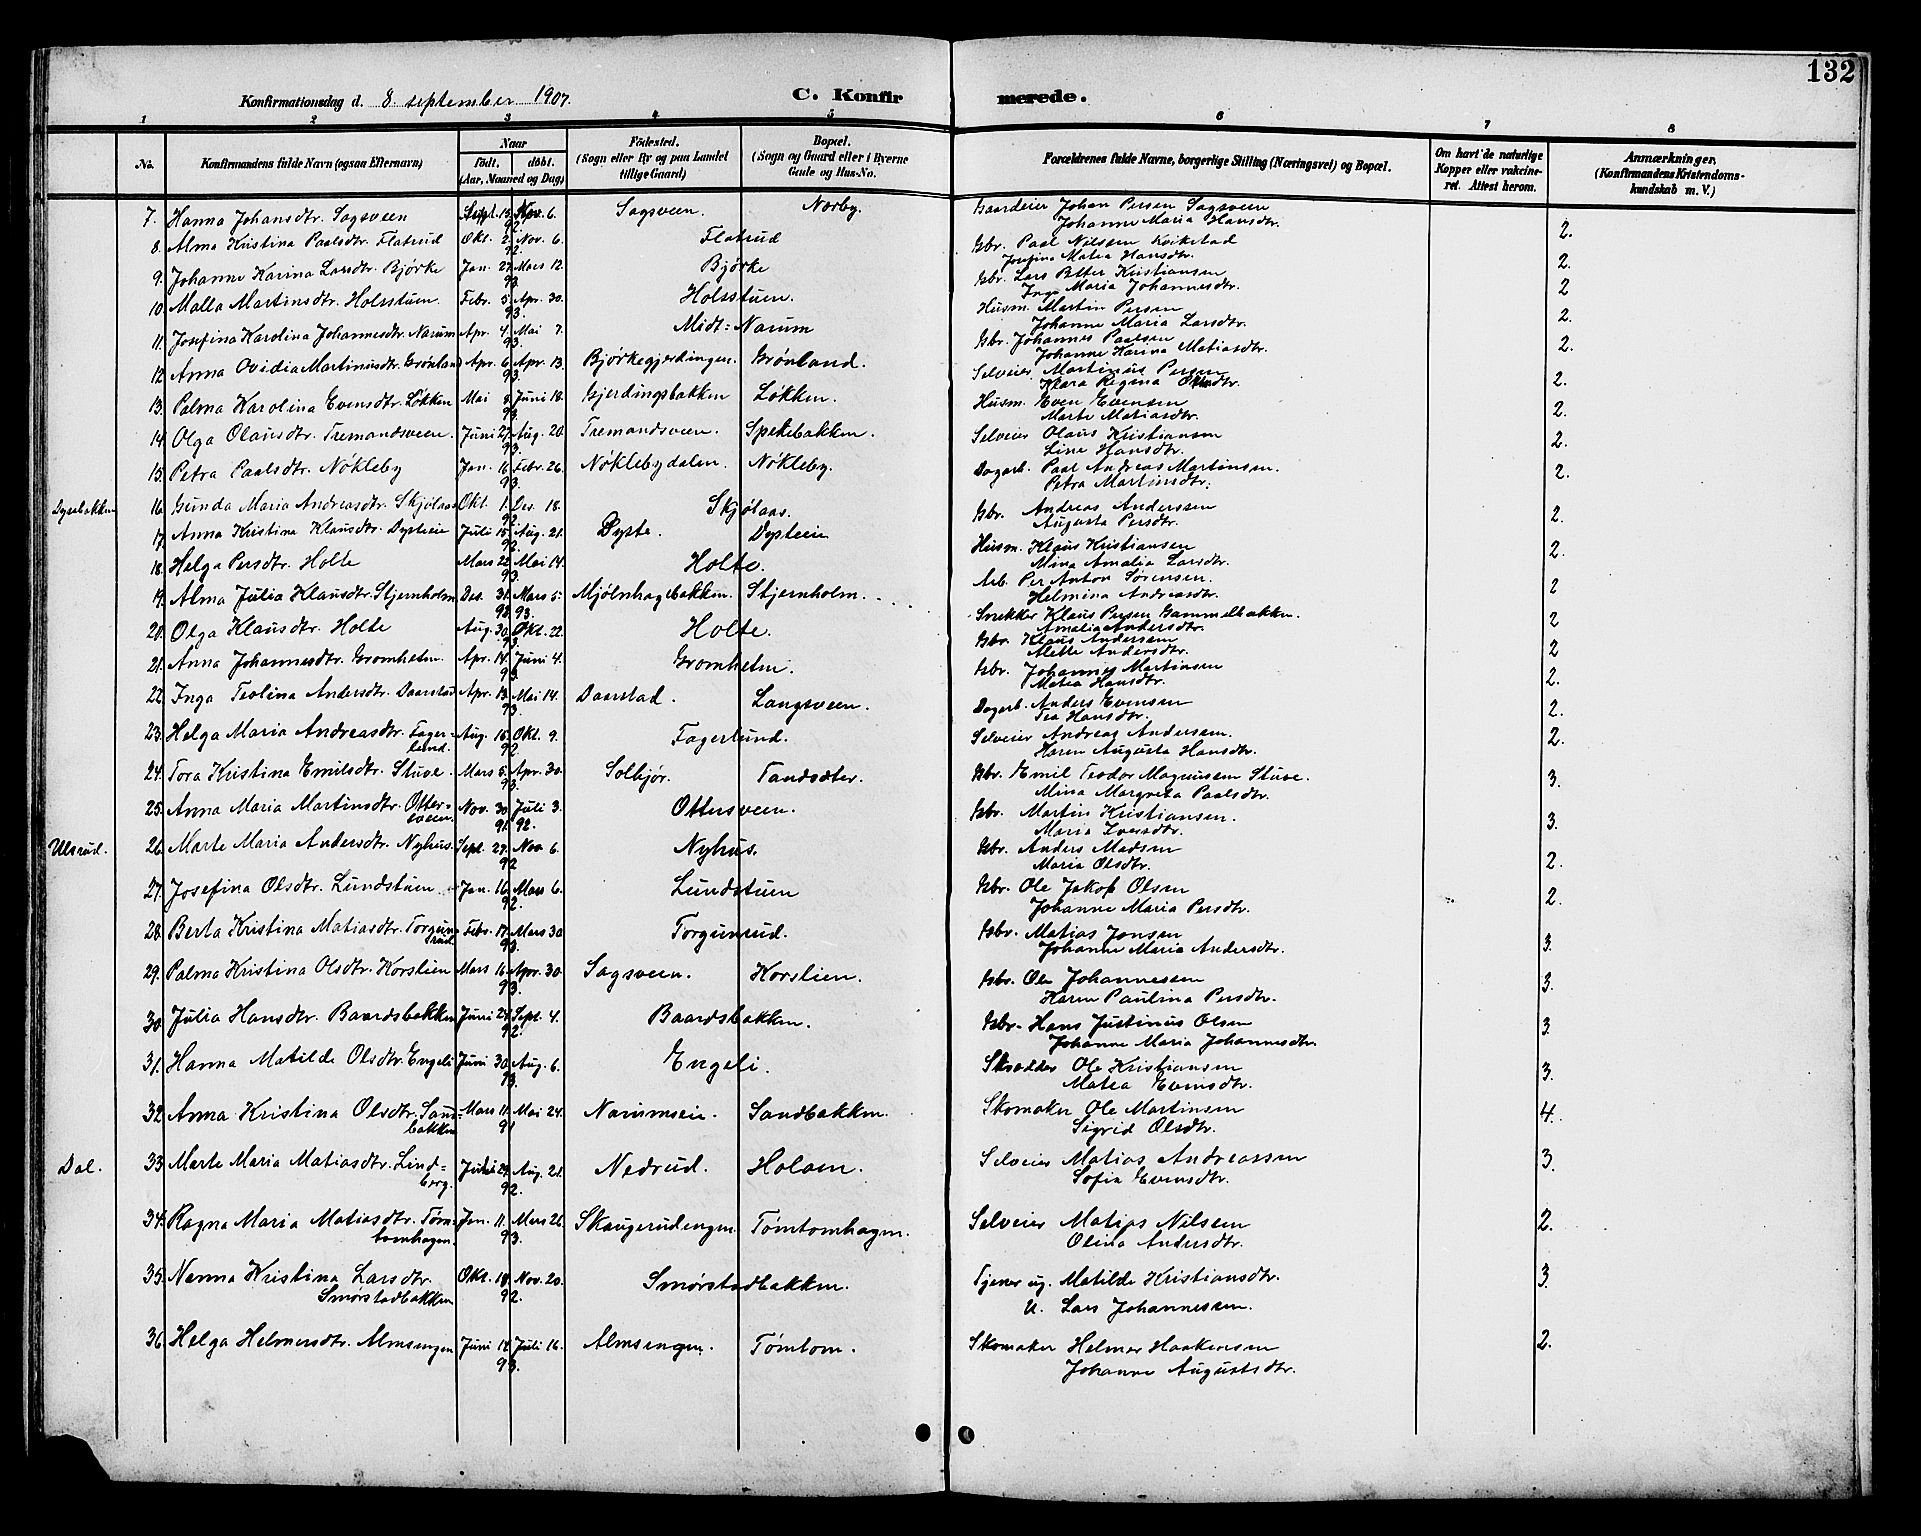 132
Konfirmationsdag d. 8. september 1907. C. Konfirmerede.
1 2 3 4 5 6 7 8
No. Konfirmandens fulde Navn (ogsaa Efternavn) Naar födt, döbt. (Aar, Maaned og Dag) Födested. (Sogn eller By og paa Landet tillige Gaard) Bopæl. (Sogn og Gaard eller i Byerne Gade og Hus-No. Forældrenes fulde Navne, borgerlige Stilling (Næringsvei) og Bopæl. Om havt de naturlige Kopper eller vakcineret. Attest herom. Anmærkninger. (Konfirmandens Kristendomskundskab m. V.)
7. Hanna Johansdtr. Sagsveen Sept. 15. Nov. 6. Sagsveen. Norby. Gaardeier Johan Persen Sagsveen
92 Johanne Maria Hansdtr. 2.
8. Alma Kristina Paalsdtr. Flatrud Okt. 2. Nov. 6. Flatrud Gbr. Paal Nilsen Kvikstad
92. Josefine Matea Hansdtr. 2.
9. Johanne Karina Larsdtr. Bjørke Jan. 27. Mars 12. Bjørke Gbr. Lars Petter Kristiansen
93. Inga Maria Johannesdtr. 2
10. Malla Martinsdtr. Holsstuen. Febr. 5. Apr. 30. Holsstuen. Husm. Martin Persen
93. Johanne Maria Larsdtr. 2.
11. Josefina Karolina Johannesdtr. Narum Apr. 4. Mai 7. Midt=Narum Gbr. Johannes Paalsen
93. Johanne Karina Matiasdtr. 2.
12. Anna Ovidia Martinusdtr. Grønland Apr. 6. Apr. 13. Bjørkegjerdingen. Grønland. Selveier Martinus Persen
93. Klara Regina Olsdtr. 2.
13. Palma Karolina Evensdtr. Løkken Mai 8. Juni 18. Gjerdingsbakken Løkken. Husm. Even Evensen
93. Marte Matiasdtr. 2.
14. Olga Olausdtr. Tremandsveen. Juni 27. Aug. 20. Tremandsveen. Spetebakken. Selveier Olaus Kristiansen
93. Line Hansdtr. 2.
15. Petra Paalsdtr. Nøkleby Jan. 16. Febr. 26. Nøklebydalen. Nøkleby. Dagarb. Paal Andreas Martinsen.
93. Petra Martinsdtr. 2.
Dysebakken 16. Gunda Maria Andreasdtr. Skjølaas Okt. 1. Des. 18. Skjølaas. Gbr. Andreas Anderssen
92. Augusta Persdtr. 2.
17. Anna Kristina Klausdtr. Dysteeie Juli 15. Aug. 21. Dyste. Dysteeie Husm. Klaus Kristiansen
92. Mina Amalia Larsdtr. 2.
18. Helga Persdtr. Holte Mars 22. Mai 14. Holte. Arb. Per Anton Sørensen.
93. Helmina Andreasdtr. 2
19. Alma Julia Klausdtr. Stjernholm Des. 31. Mars 5. Mjølnhagebakken. Stjernholm. Snekker Klaus Persen Gammelbakken.
92 93. Amalia Andersdtr. 2
20. Olga Klausdtr. Holte Aug. 30. Okt. 22. Holte. Gbr. Klaus Andersen
93. Alette Andersdtr. 2
21. Anna Johannesdtr. Gromheim. Apr. 14. Juni 4. Gromheim. Gbr. Johannes Martinsen
93. Matea Hansdtr. 2.
22. Inga Teolina Andersdtr. Daarstad Apr. 13. Mai 14. Daarstad. Langsveen. Dagarb. Anders Evensen
93. Tea Hansdtr. 2.
23. Helga Maria Andreasdtr. Fager- Aug. 15. Okt. 9. Fagerlund. Selveier Andreas Andersen.
lund. 92. Karen Augusta Hansdtr. 2.
24. Tora Kristina Emilsdtr. Stuve. Mars 5. Apr. 30. Solbjør. Tandsæter. Gbr. Emil Teodor Magnussen Stuve.
93. Mina Margreta Paalsdtr. 3.
25. Anna Maria Martinsdtr. Otter- Nov. 30. Juli 3. Ottersveen. Gbr. Martin Kristiansen.
sveen. 91. 92. Maria Iversdtr. 3.
Ulsrud. 26. Marte Maria Andersdtr. Nyhus. Sept. 27. Nov. 6. Nyhus. Gbr. Anders Madsen
92. Maria Olsdtr. 2.
27. Josefina Olsdtr. Lundstuen Jan. 16. Mars 6. Lundstuen Gbr. Ole Jakop Olsen
92. Johanne Maria Persdtr. 2.
28. Berta Kristina Matiasdtr. Torgun- Febr. 17. Mars 30 Torgunrud. Gbr. Matias Jonsen
rud. 93. Johanne Maria Andersdtr. 3.
29. Palma Kristina Olsdtr. Korslien Mars 16. Apr. 30. Sagsveen. Korslien. Gbr. Ole Johannessen
93. Karen Paulina Persdtr. 3.
30. Julia Hansdtr. Baardsbakken Juni 24. Sept. 4. Baardsbakken. Gbr. Hans Justinus Olsen
92. Johanne Maria Johannesdtr. 3
31. Hanna Matilde Olsdtr. Engeli Juni 30. Aug. 6. Engeli. Skrædder Ole Kristiansen
93. Matea Evensdtr. 3.
32. Anna Kristina Olsdtr. Sand- Mars 11. Mai 24. Narumseie. Sandbakken. Skomaker Ole Martinsen
bakken 91 Sigrid Olsdtr. 4.
Dal. 33. Marte Maria Matiasdtr. Lind= Juli 24. Aug. 21. Nedrud. Holaen. Selveier Matias Andreassen
berg. 92. Sofia Evensdtr. 3.
34. Ragna Maria Matiasdtr. Tøm- Jan. 11. Mars 26. Skaugerudengen. Tømtomhagen. Selveier Matias Nilsen 2.
tomhagen. 93. Olina Andersdtr.
35. Nanna Kristina Larsdtr. Okt. 18. Nov. 20. Smørstadbakken. Tjener ug. Matilde Kristiansdtr. 3
Smørstadbakken 92. U. Lars Johannessen.
36. Helga Helmersdtr. Almsengen Juni 14. Juli 16. Almsengen. Tømtom. Skomaker Helmer Haakensen 2.
93. Johanne Augustsdtr.